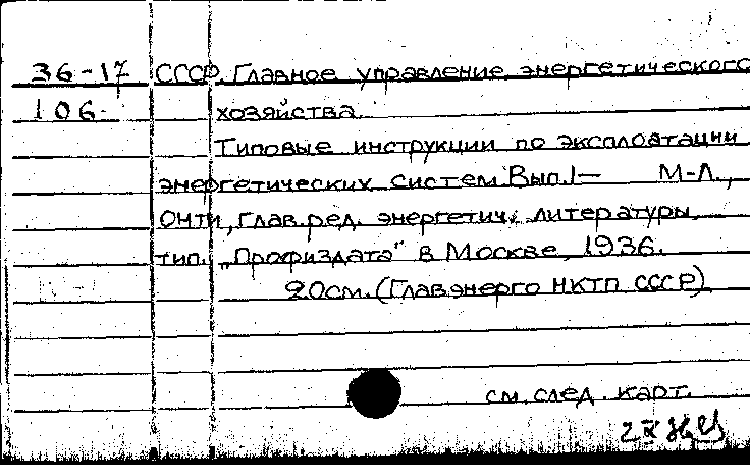 36-17 СССР. Главное управление энергетического
106- хозяйства
Типовые инструкции по эксплоатации
энергетических систем. Вып. 1— М-Л.,
ОНТИ, глав. ред. энергетич. литературы,
тип. „Профиздата" в Москве, 1936.
20см. (Главэнерго НКТП СССР)
см. след. карт.